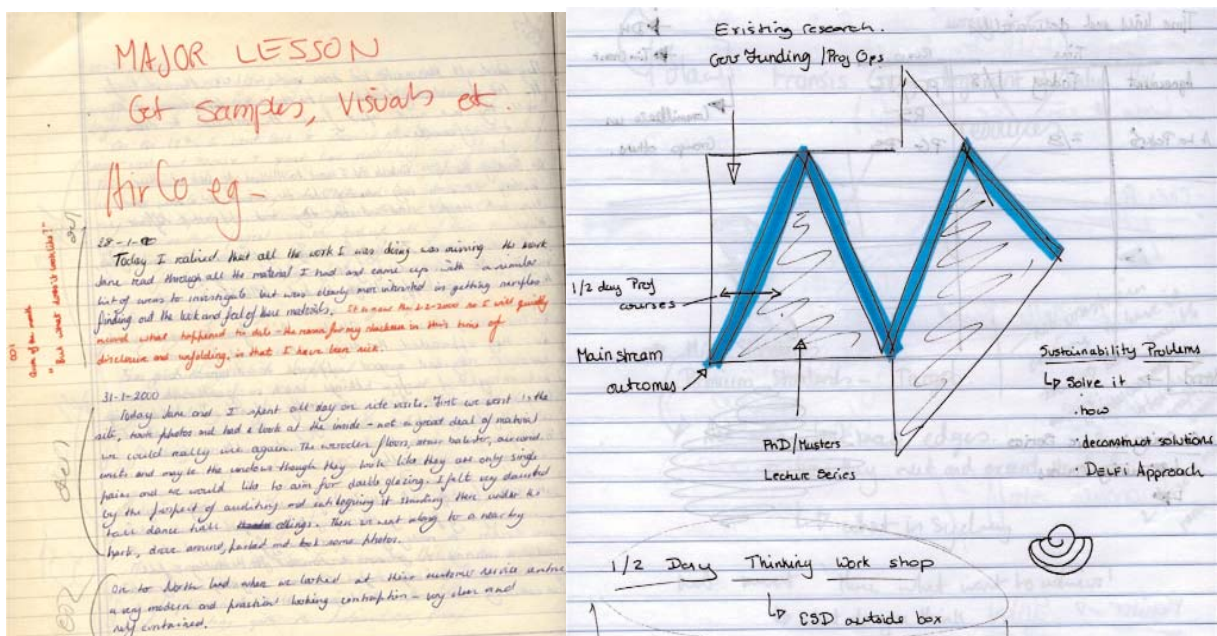 MAJOR LESSON
Get Samples, Visuals et.
Air Co eg -
"But what does it look like?"
28-1-
Today I realised that all the work I was doing was aiming the work
Jane read through all the material I had and came up with a similar
list of areas to investigate but was clearly more interested in getting samples &
finding out the look and feel of these materials. It is now the 2-2-2000 so I will quickly
record what happened to date - the reason for my slackness in this time of
disclosure and unfolding, is that I have been sick.
31-1-2000
Today Jane and I spent all day on site visits. First we went to the
site, took photos and had a look at the inside - not a great deal of material
we could really use again. The wooden floors, balister, aircond
units and maybe the windows though they look like they are only single
pains and we would like to aim for double glazing. I felt very daunted
by the prospect of auditing and cataloguing it standing there under the
dance hall ceilings. Then we went along to a nearby
park, drove around, parked and took some photos.
On to North land where we looked at their customer service centre
a very modern and practical looking contraption - very clean and
self contained.
Existing research.
Gov Funding / Proj Ops
1/2 day Prof
courses
Main stream
outcomes
PhD/Masters
Lecture Series
Sustainability Problems
↳ Solve it
· how
· deconstruct solutions
· DELFI Approach
1/2 Day Thinking Work shop
↳ ESD outside box